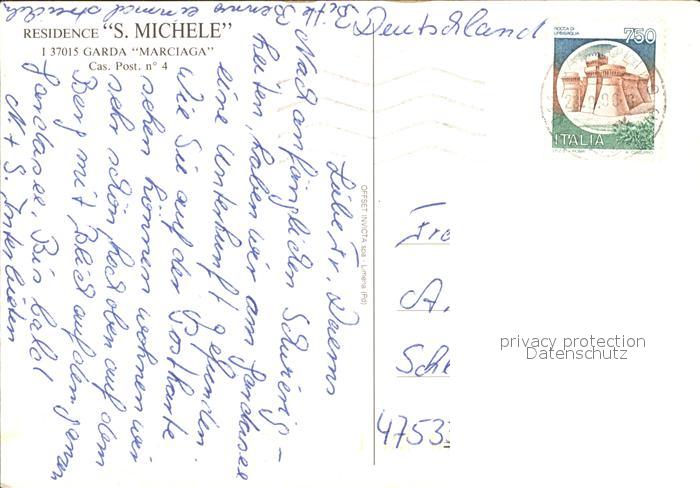 RESIDENCE "S. MICHELE"
I 37015 GARDA "MARCIAGA"
Cas. Post. n° 4
Liebe Fr. Daems
Nach anfänglichen Schwierig-
keiten, haben wir am Gardasee
eine Unterkunft gefunden.
Wie Sie auf der Postkarte
sehen können wohnen wir
sehr schön, hoch oben auf dem
Berg mit Blick auf den ganzen
Gardasee. Bis bald
Bitte Benno einmal streicheln
OFFSET INVICTA spa - Limena (Pd)
Deutschland
ROCCA DI URBISAGLIA
750
ITALIA
A.
47533
privacy protection
Datenschutz